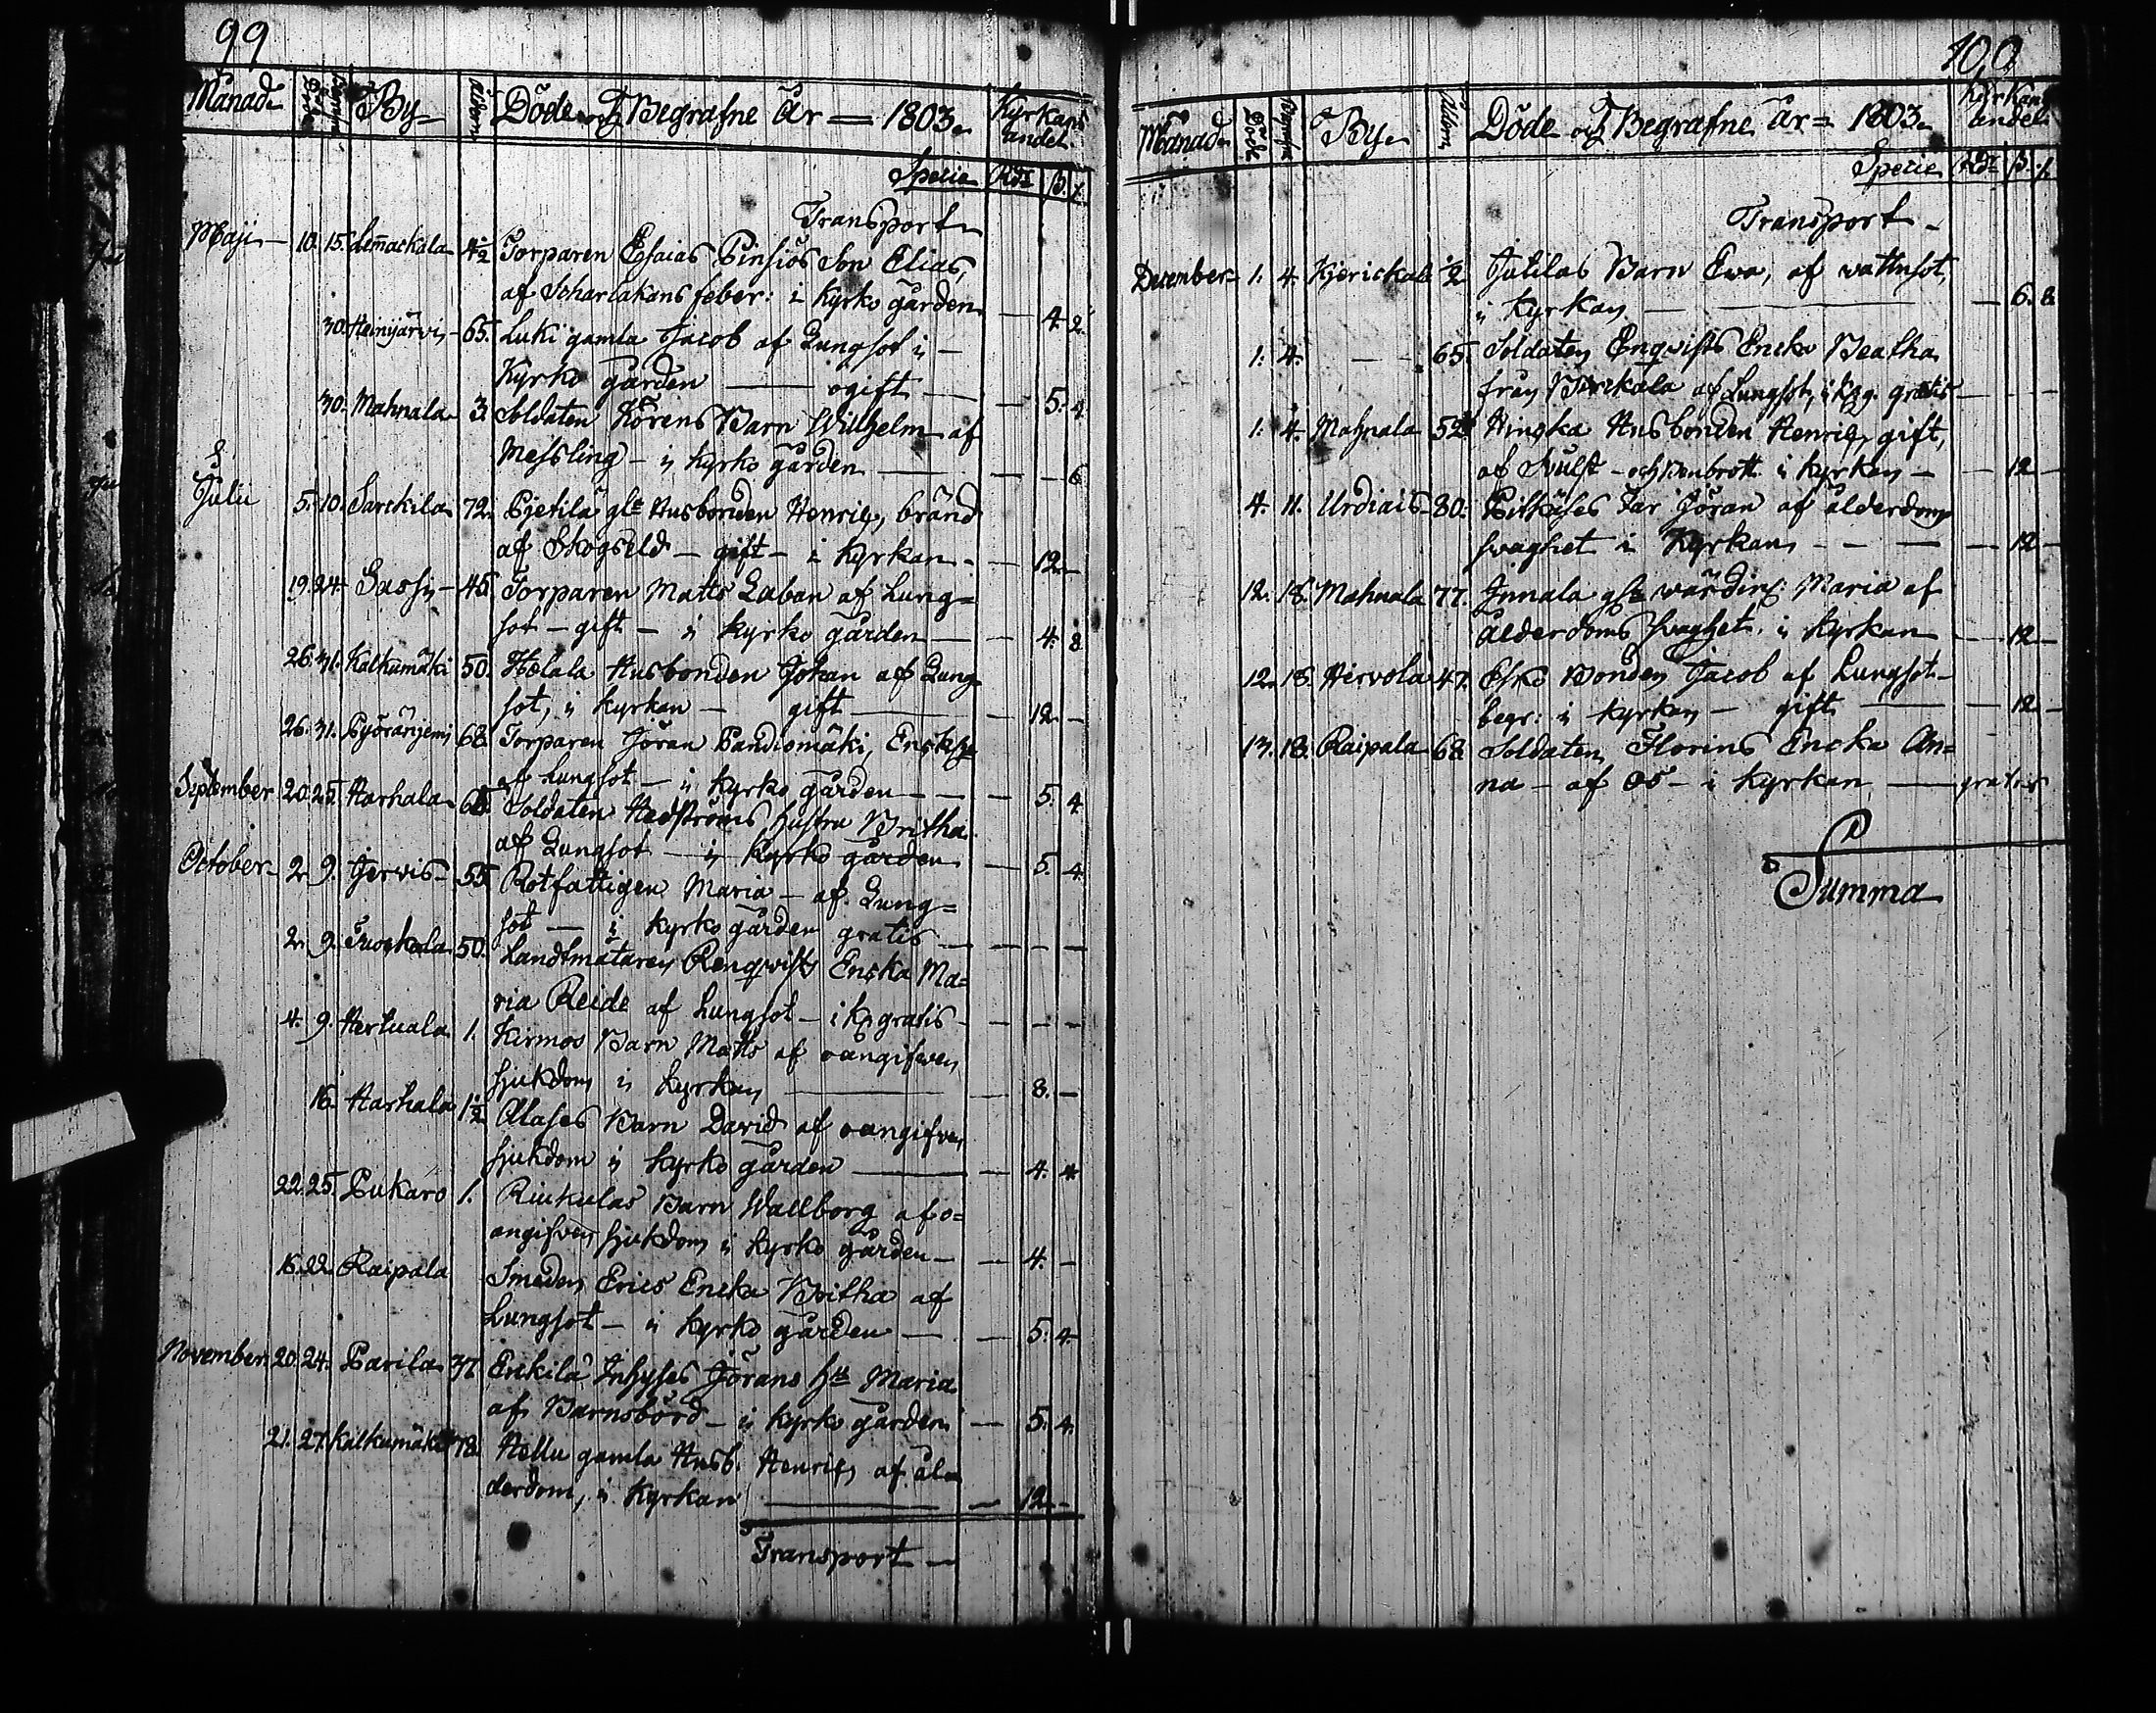 99
Månad Döde Begrafne By Åldern Döde och Begrafne År 1803. Kyrkans andel
Specie Rdr ß. r.
Transport
Maji 10. 15. Lemackala 4½ Torparen Esaias Pinsiös Son Elias,
af Scharlakans feber: i Kyrko gården — 4. 2.
30. Heinijärvi 65. Luki gamla Jacob af Lungsot i
Kyrko gården — ogift — 5. 4.
30. Mahnala 3. Soldaten Körens Barn Wilhelm af
Messling — i Kyrko gården — — 6
Julii 5. 10. Sarckila 72. Pjetilä gle Husbonden Henric, bränd
af Skogseld — gift — i Kyrkan — 12. —
19. 24. Sassi 45. Torparen Matts Laban af Lung=
sot — gift — i Kyrko gården — 4. 8
26. 31. Kalkumäki 50. Holala Husbonden Johan af Lung=
sot, i Kyrkan — gift — 12. —
26. 31. Pyöräniemi 68. Torparen Jöran Pandiomäki, Enckl:
af Lungsot — i Kyrko gården — 5. 4
September 20. 25. Harhala Soldaten Hedströms hustru Britha
af Lungsot — i Kyrko gården — 5. 4.
October 2. 9. Jervis 55. Rotfattigen Maria — af Lung=
sot — i Kyrko gården gratis — — —
2. 9. Tuorkola 50. Landtmätaren Renqvists Encka Ma=
ria Reide af Lungsot — i Kg gratis — — —
4. 9. Hertuala 1. Kirmos Barn Matts af oangifven
sjukdom i Kyrkan — 8. —
16. Harhala 1½ Alases Barn David af oangifven
sjukdom i Kyrko gården — 4. 4
22. 25. Pukaro 1. Riukulas Barn Wallborg af o=
angifven sjukdom i Kyrko gården — 4. —
16. 22. Raipala Smeden Erics Encka Britha af
Lungsot — i Kyrko gården — 5. 4.
November 20. 24. Parila 37. Erckilä Inhyses Jörans hu Maria
af Barnsbörd — i Kyrko gården — 5. 4.
21. 27. Kalkumäki 78. Hellu gamla Husb. Henric af ål=
derdom, i Kyrkan — 12. —
Transport —
100
Månad Döde Begrafne By Åldern Döde och Begrafne År = 1803. Kyrkans andel
Specie Rdr ß. r.
Transport —
December 1. 4. Kjerickala ½ Jutilas Barn Ewa, af vattusot,
i Kyrkan — 6. 8.
1. 4. — 65. Soldaten Enqvists Encka Beatha
från Birckala af Lungsot, i Kg. gratis — — —
1. 4. Mahnala 52. Hingka Husbonden Henric, gift,
af Svulst — och benbrott i Kyrkan — 12 —
4. 11. Urdiais 80. Pitkäses Far Jöran af ålderdoms
svaghet i Kyrkan — — 12 —
12. 18. Mahnala 77. Innala gla värdin: Maria af
ålderdoms svaghet, i Kyrkan — 12 —
12. 18. Hirvola 47. Esko Bonden Jacob af Lungsot —
begr: i Kyrkan — gift — 12 —
13. 18. Raipala 68. Soldaten Florins Encka An=
na — af Os — i Kyrkan — gratis
Summa